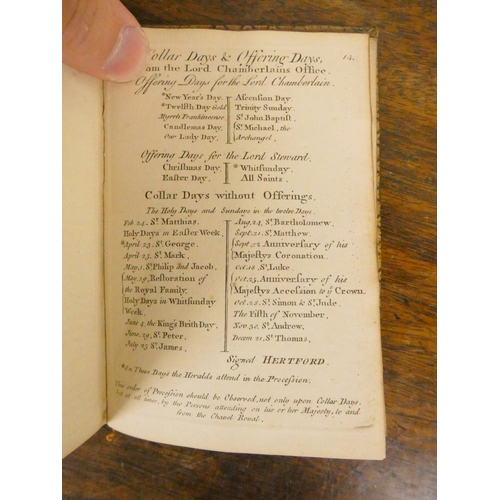 Collar Days & Offering Days, 14.
from the Lord Chamberlains Office.
Offering Days for the Lord Chamberlain.
*New Year's Day.
*Twelfth Day Gold
Myrrh Frankincense.
Candlemas Day.
Our Lady Day.
Ascension Day.
Trinity Sunday.
St John Baptist.
St Michael, the
Archangel.
Offering Days for the Lord Steward.
Christmas Day.
Easter Day.
*Whitsunday.
All Saints.
Collar Days without Offerings.
The Holy Days and Sundays in the twelve Days.
Feb 24. St Matthias.
Holy Days in Easter Week,
*April 23. St George.
April 25. St Mark,
May 1. St Philip and Jacob,
May 29. Restoration of
the Royal Family.
Holy Days in Whitsunday
Week.
June 4. the King's Brith Day.
June, 29. St Peter,
July 25 St James,
Aug 24. St Bartholomew.
Sept. 21. St Matthew.
Sept. 22 Anniversary of his
Majestys Coronation.
Oct. 18. St Luke.
Oct. 25. Anniversary of his
Majestys Accession to ye Crown.
Oct. 28. St Simon & St Jude.
The Fifth of November,
Nov. 30. St Andrew,
Decem 21. St Thomas,
Signed HERTFORD.
*On These Days the Heralds attend in the Procession.
This order of Precession should be Observed, not only upon Collar Days,
but at all times, by the Persons attending on his or her Majesty, to and
from the Chapel Royal.